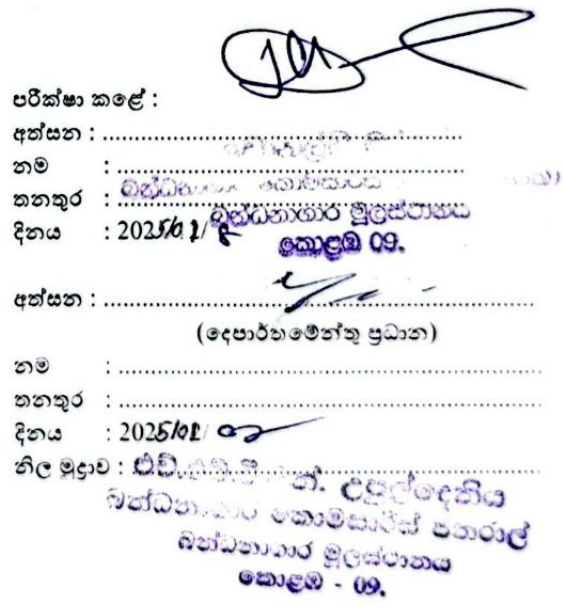 පරීක්ෂා කළේ :
අත්සන : ......................................................
නම : ......................................................
තනතුර : බන්ධනාගාර
බන්ධනාගාර මූලස්ථානය
දිනය : 2025/01/
කොළඹ 09.
අත්සන : ......................................................
(දෙපාර්තමේන්තු ප්‍රධාන)
නම : ......................................................
තනතුර : ......................................................
දිනය : 2025/01/ 02
නිල මුද්‍රාව : එච්. න්. උපුල්දෙනිය
බන්ධනාගාර කොමසාරිස් ජනරාල්
බන්ධනාගාර මූලස්ථානය
කොළඹ - 09.